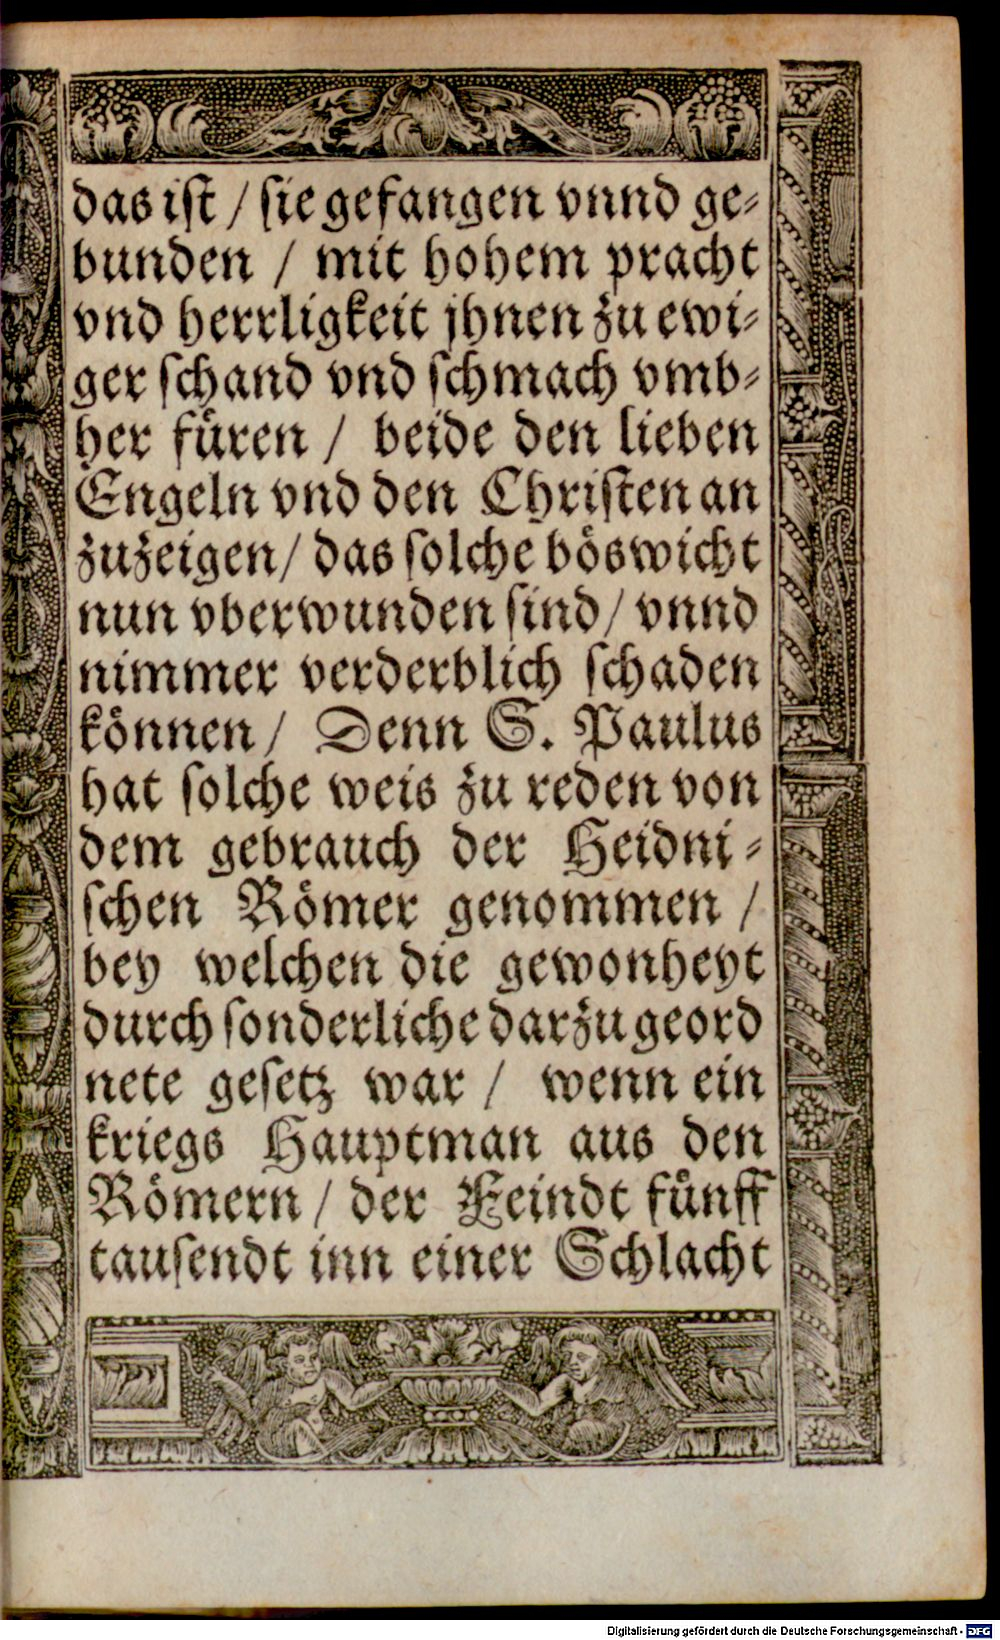 das ist / sie gefangen vnnd ge⸗
bunden / mit hohem pracht
vnd herrligkeit jhnen zu ewi⸗
ger schand vnd schmach vmb⸗
her fuͤren / beide den lieben
Engeln vnd den Christen an
zuzeigen / das solche boͤswicht
nun vberwunden sind / vnnd
nimmer verderblich schaden
koͤnnen / Denn S. Paulus
hat solche weis zu reden von
dem gebrauch der Heidni⸗
schen Roͤmer genommen /
bey welchen die gewonheyt
durch sonderliche darzu geord
nete gesetz war / wenn ein
kriegs Hauptman aus den
Roͤmern / der Feindt fuͤnff
tausendt inn einer Schlacht
Digitalisierung gefördert durch die Deutsche Forschungsgemeinschaft - DFG